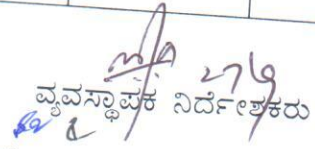 ವ್ಯವಸ್ಥಾಪಕ ನಿರ್ದೇಶಕರು